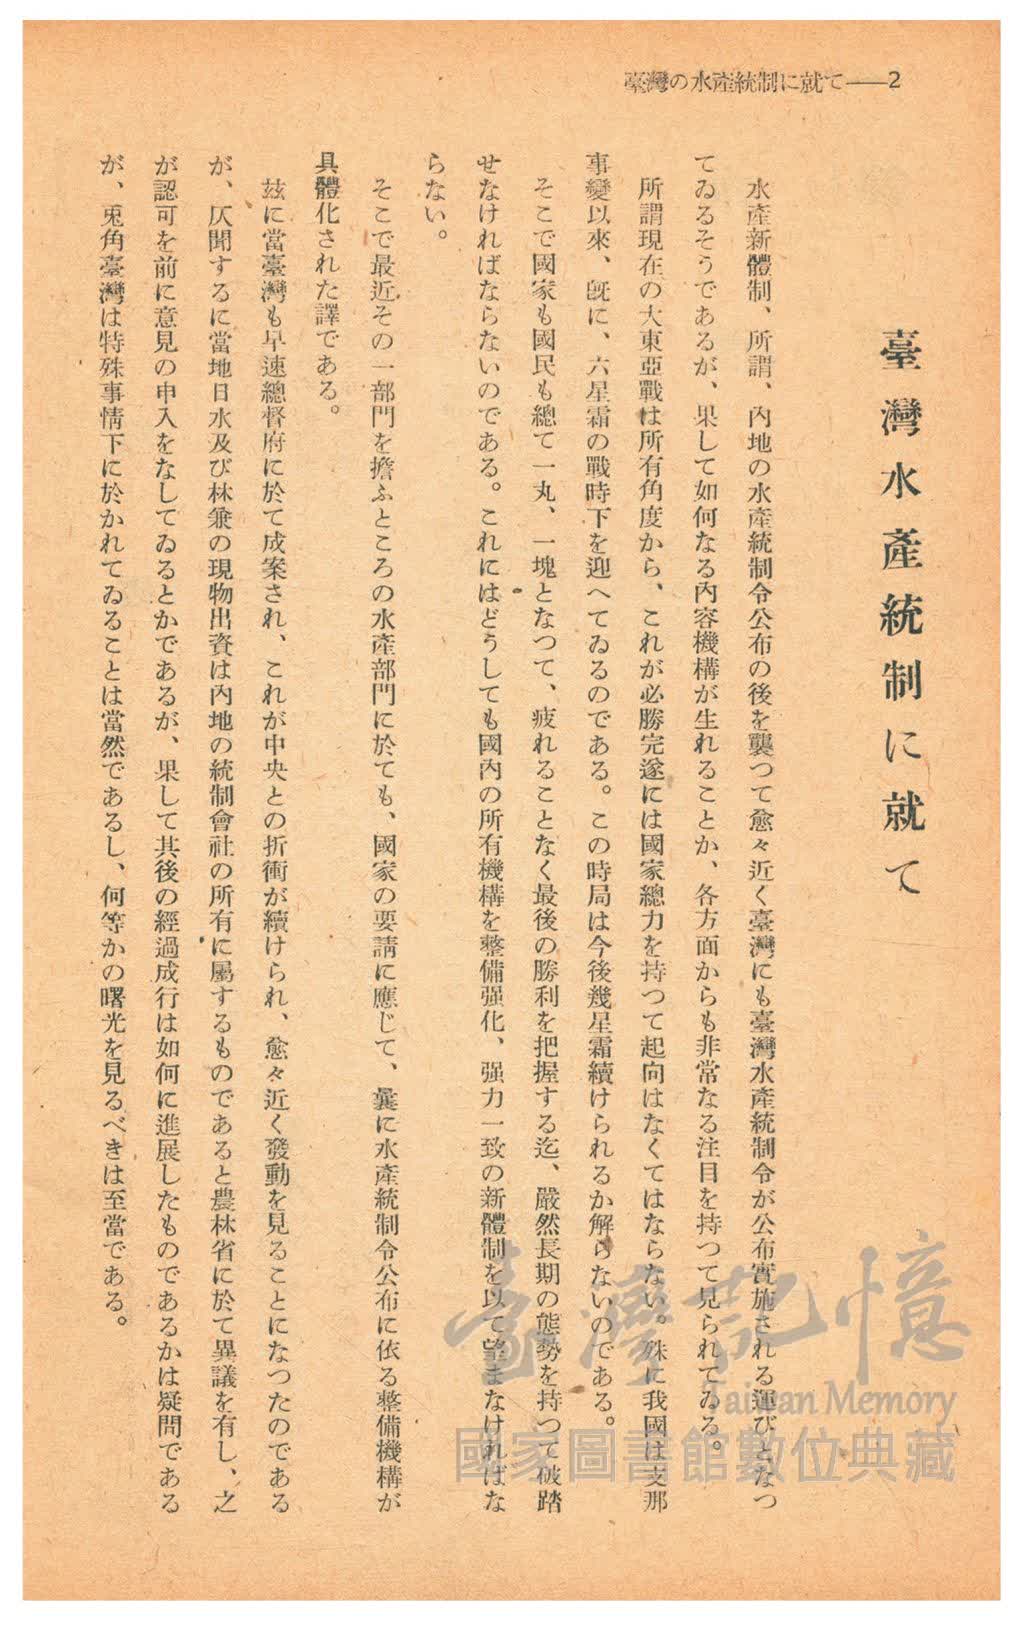 臺灣の水產統制に就て——2
臺灣水產統制に就て
水產新體制、所謂、內地の水產統制令公布の後を襲つて愈々近く臺灣にも臺灣水產統制令が公布實施される運びとなつ
てゐるそうであるが、果して如何なる內容機構が生れることか、各方面からも非常なる注目を持つて見られてゐる。
所謂現在の大東亞戰は所有角度から、これが必勝完遂には國家總力を持つて起向はなくてはならない。殊に我國は支那
事變以來、旣に、六星霜の戰時下を迎へてゐるのである。この時局は今後幾星霜續けられるか解らないのである。
そこで國家も國民も總て一丸、一塊となつて、疲れることなく最後の勝利を把握する迄、嚴然長期の態勢を持つて破踏
せなければならないのである。これにはどうしても國內の所有機構を整備强化、强力一致の新體制を以て望まなければな
らない。
そこで最近その一部門を擔ふところの水產部門に於ても、國家の要請に應じて、曩に水產統制令公布に依る整備機構が
具體化された譯である。
玆に當臺灣も早速總督府に於て成案され、これが中央との折衝が續けられ、愈々近く發動を見ることになつたのである
が、仄聞するに當地日水及び林兼の現物出資は內地の統制會社の所有に屬するものであると農林省に於て異議を有し、之
が認可を前に意見の申入をなしてゐるとかであるが、果して其後の經過成行は如何に進展したものであるかは疑問である
が、兎角臺灣は特殊事情下に於かれてゐることは當然であるし、何等かの曙光を見るべきは至當である。
臺灣記憶
Taiwan Memory
國家圖書館數位典藏